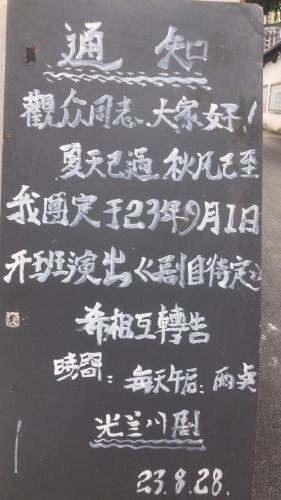 通知
觀众同志、大家好！
夏天已過 秋风已至
我團定于23年9月1日
开班演出《剧目待定》
希相互轉告
時間：每天午后：两点
光兰川剧
23.8.28.